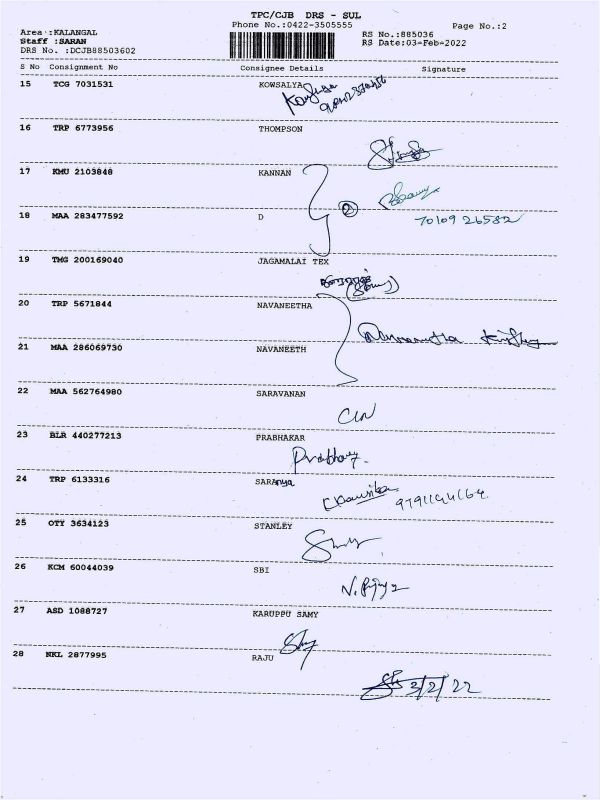 TPC/CJB DRS - SUL
Phone No.:0422-3505555 Page No.:2
Area :KALANGAL RS No.:885036
Staff :SARAN RS Date:03-Feb-2022
DRS No. :DCJB88503602
S No Consignment No Consignee Details Signature
15 TCG 7031531 KOWSALYA
16 TRP 6773956 THOMPSON
17 KMU 2103848 KANNAN
18 MAA 283477592 D 2
70109 26582
19 TMG 200169040 JAGAMALAI TEX
20 TRP 5671844 NAVANEETHA
21 MAA 286069730 NAVANEETH
22 MAA 562764980 SARAVANAN
23 BLR 440277213 PRABHAKAR
24 TRP 6133316 SARAnya
25 OTY 3634123 STANLEY
26 KCM 60044039 SBI
27 ASD 1088727 KARUPPU SAMY
28 NKL 2877995 RAJU
3/2/22